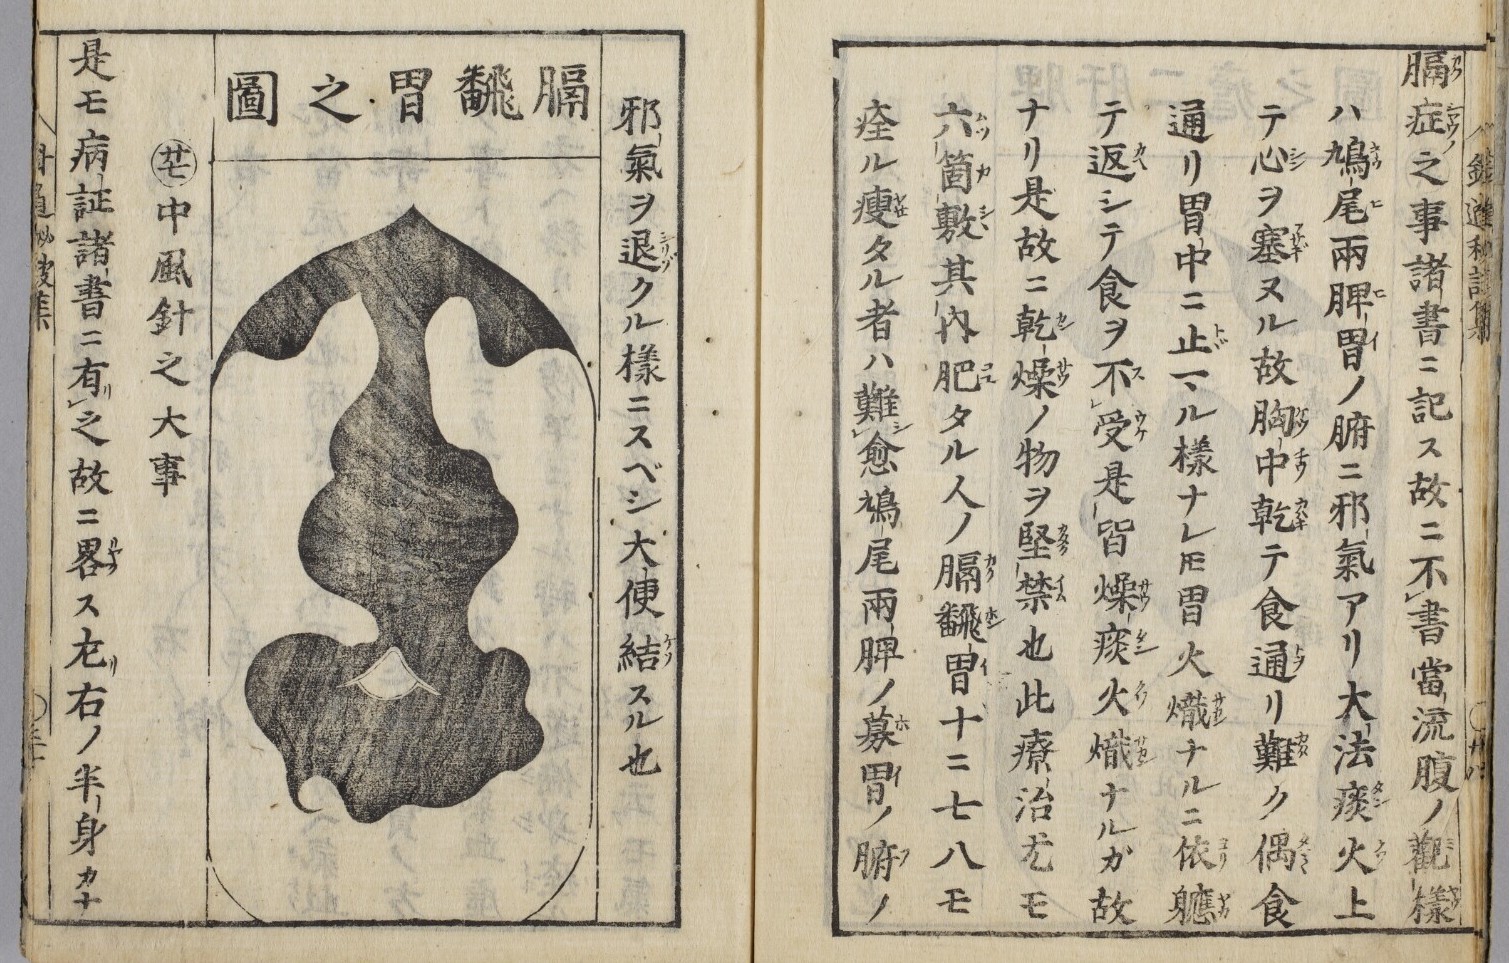 膈症之事諸書ニ記ス故ニ不書當流腹ノ觀樣
ハ鳩尾兩脾胃ノ腑ニ邪氣アリ大法痰火上
テ心ヲ塞ヌル故胸中乾テ食通リ難ク偶食
通リ胃中ニ止マル樣ナレ𪜈胃火熾ナルニ依軈
テ返シテ食ヲ不受是皆燥痰火熾ナルガ故
ナリ是故ニ乾燥ノ物ヲ堅禁也此療治尤モ
六箇敷其内肥タル人ノ膈飜胃十ニ七八モ
痊ル瘦タル者ハ難愈鳩尾兩脾ノ募胃ノ腑ノ
邪氣ヲ退クル樣ニスベシ大便結スル也
膈飜胃之圖
中風針之大事
是モ病証諸書ニ有之故ニ畧ス左右ノ半身カナ